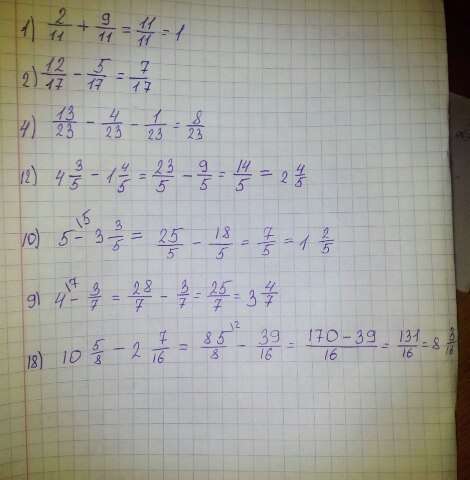 1) 2/11 + 9/11 = 11/11 = 1
2) 12/17 - 5/17 = 7/17
4) 13/23 - 4/23 - 1/23 = 8/23
12) 4 3/5 - 1 4/5 = 23/5 - 9/5 = 14/5 = 2 4/5
10) 5\5 - 3 3/5 = 25/5 - 18/5 = 7/5 = 1 2/5
9) 4\7 - 3/7 = 28/7 - 3/7 = 25/7 = 3 4/7
18) 10 5/8 - 2 7/16 = 85/8\2 - 39/16 = 170-39/16 = 131/16 = 8 3/16